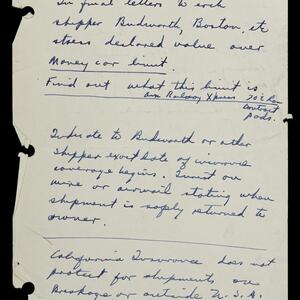 In final letters to each
shipper Budworth, Boston, etc
stress declared value over
Money car limit.
Find out what this limit is
Am Railway Xpress
Contract
pads.
Indicate to Budworth or other
shipper exact date of insurance
coverage begins. Insist on
wire or airmail stating when
shipment is safely returned to
owner.
California Insurance does not
protect for shipments on
Breakage or outside U.S.A.